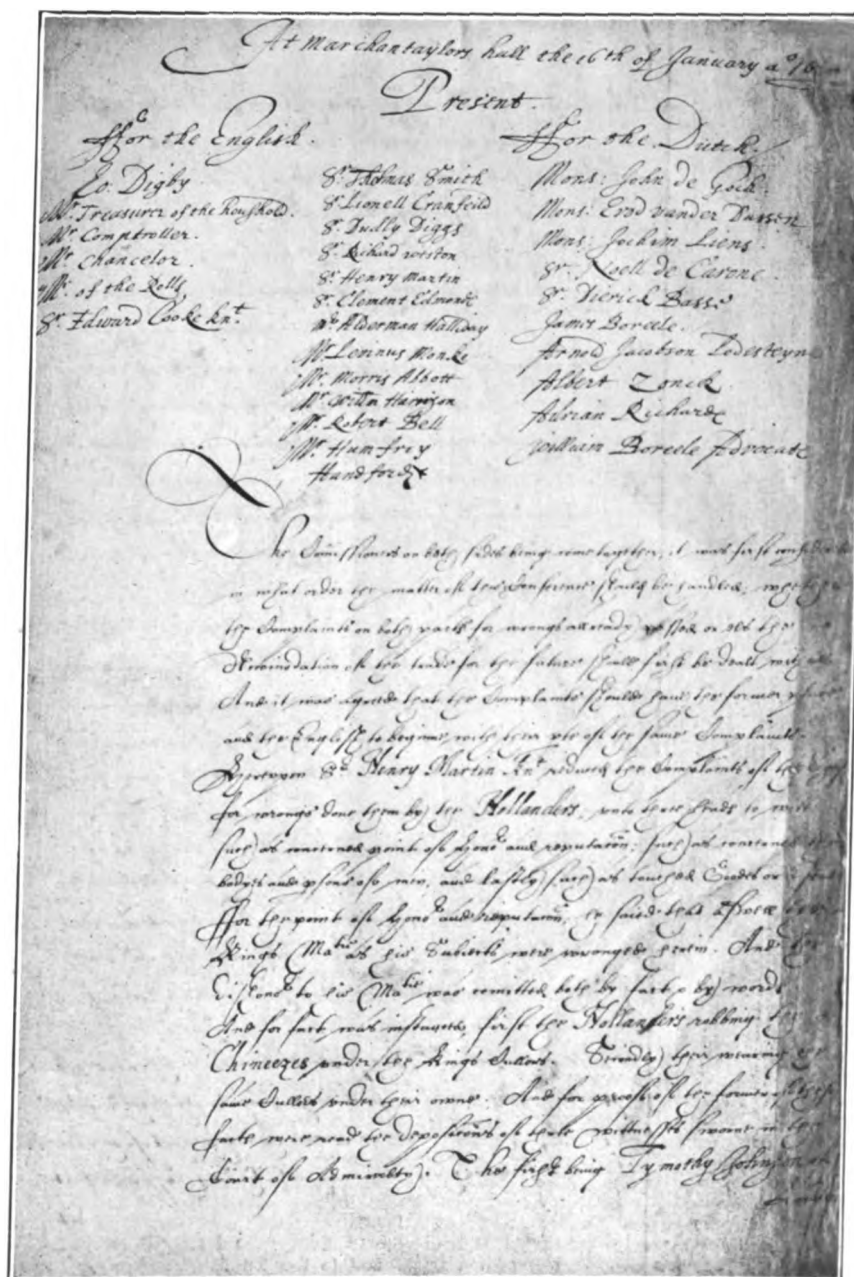 At Marchantaylors hall the 16th of January aº 16
Present.
ffor the English.
Lo. Digby
Mr. Treasurer of the houshold.
Mr Comptroller.
Mr Chancelor.
Mr. of the Rolls
Sr. Edward Cooke knt.
Sr. Thomas Smith
Sr. Lionell Cranfeild
Sr. Dudly Diggs
Sr. Richard weston
Sr. Henry Martin
Sr. Clement Edmonds
mr. Alderman Halliday
Mr. Levinus Monke
Mr. Morris Abbott
Mr. Willm Harryson
Mr. Robert Bell
Mr. Humfrey
Handford
ffor the Dutch.
Mons: John de Goch.
Mons: Ewod vander Dussen
Mons: Jochim Liens
Sr. Noell de Carone
Sr. Dierick Basse
James Boreele.
Arnod Jacobson Lodesteyne
Albert Zonck
Adrian Richard
William Boreele Advocate
The Comissioners on both sides being come together, it was first considered
in what order the matter of this Conference should be handled, whether
the Complaints on both parts for wrongs allready passed or els the
Accomodation of the trade for the future should first be dealt with
And it was agreed that the Complaints should have the former place
and the English to beginne with their pte of the same Complaints.
Hereupon Sr. Henry Martin Knt reduced the Complaints of the
for wrongs done them by the Hollanders, unto three heads to witt
such as concerned point of Honor and reputacon; such as concerned
bodyes and psons of men, and lastly such as touched Goods or
ffor the point of Honor and reputacon, he said that aswell the
Kings Matie as his Subiects were wronged herein. And the
dishonor to his Matie was comitted both by fact & by words
And for fact was instanced, first the Hollanders robbing the
Chineezes under the Kings Cullors. Secondly their wearing the
same Cullors under their owne. And for proofe of the former of these
facts were read the deposicons of three wittnesses sworne in the
Court of Admiralty. The first being Tymothy Johnson